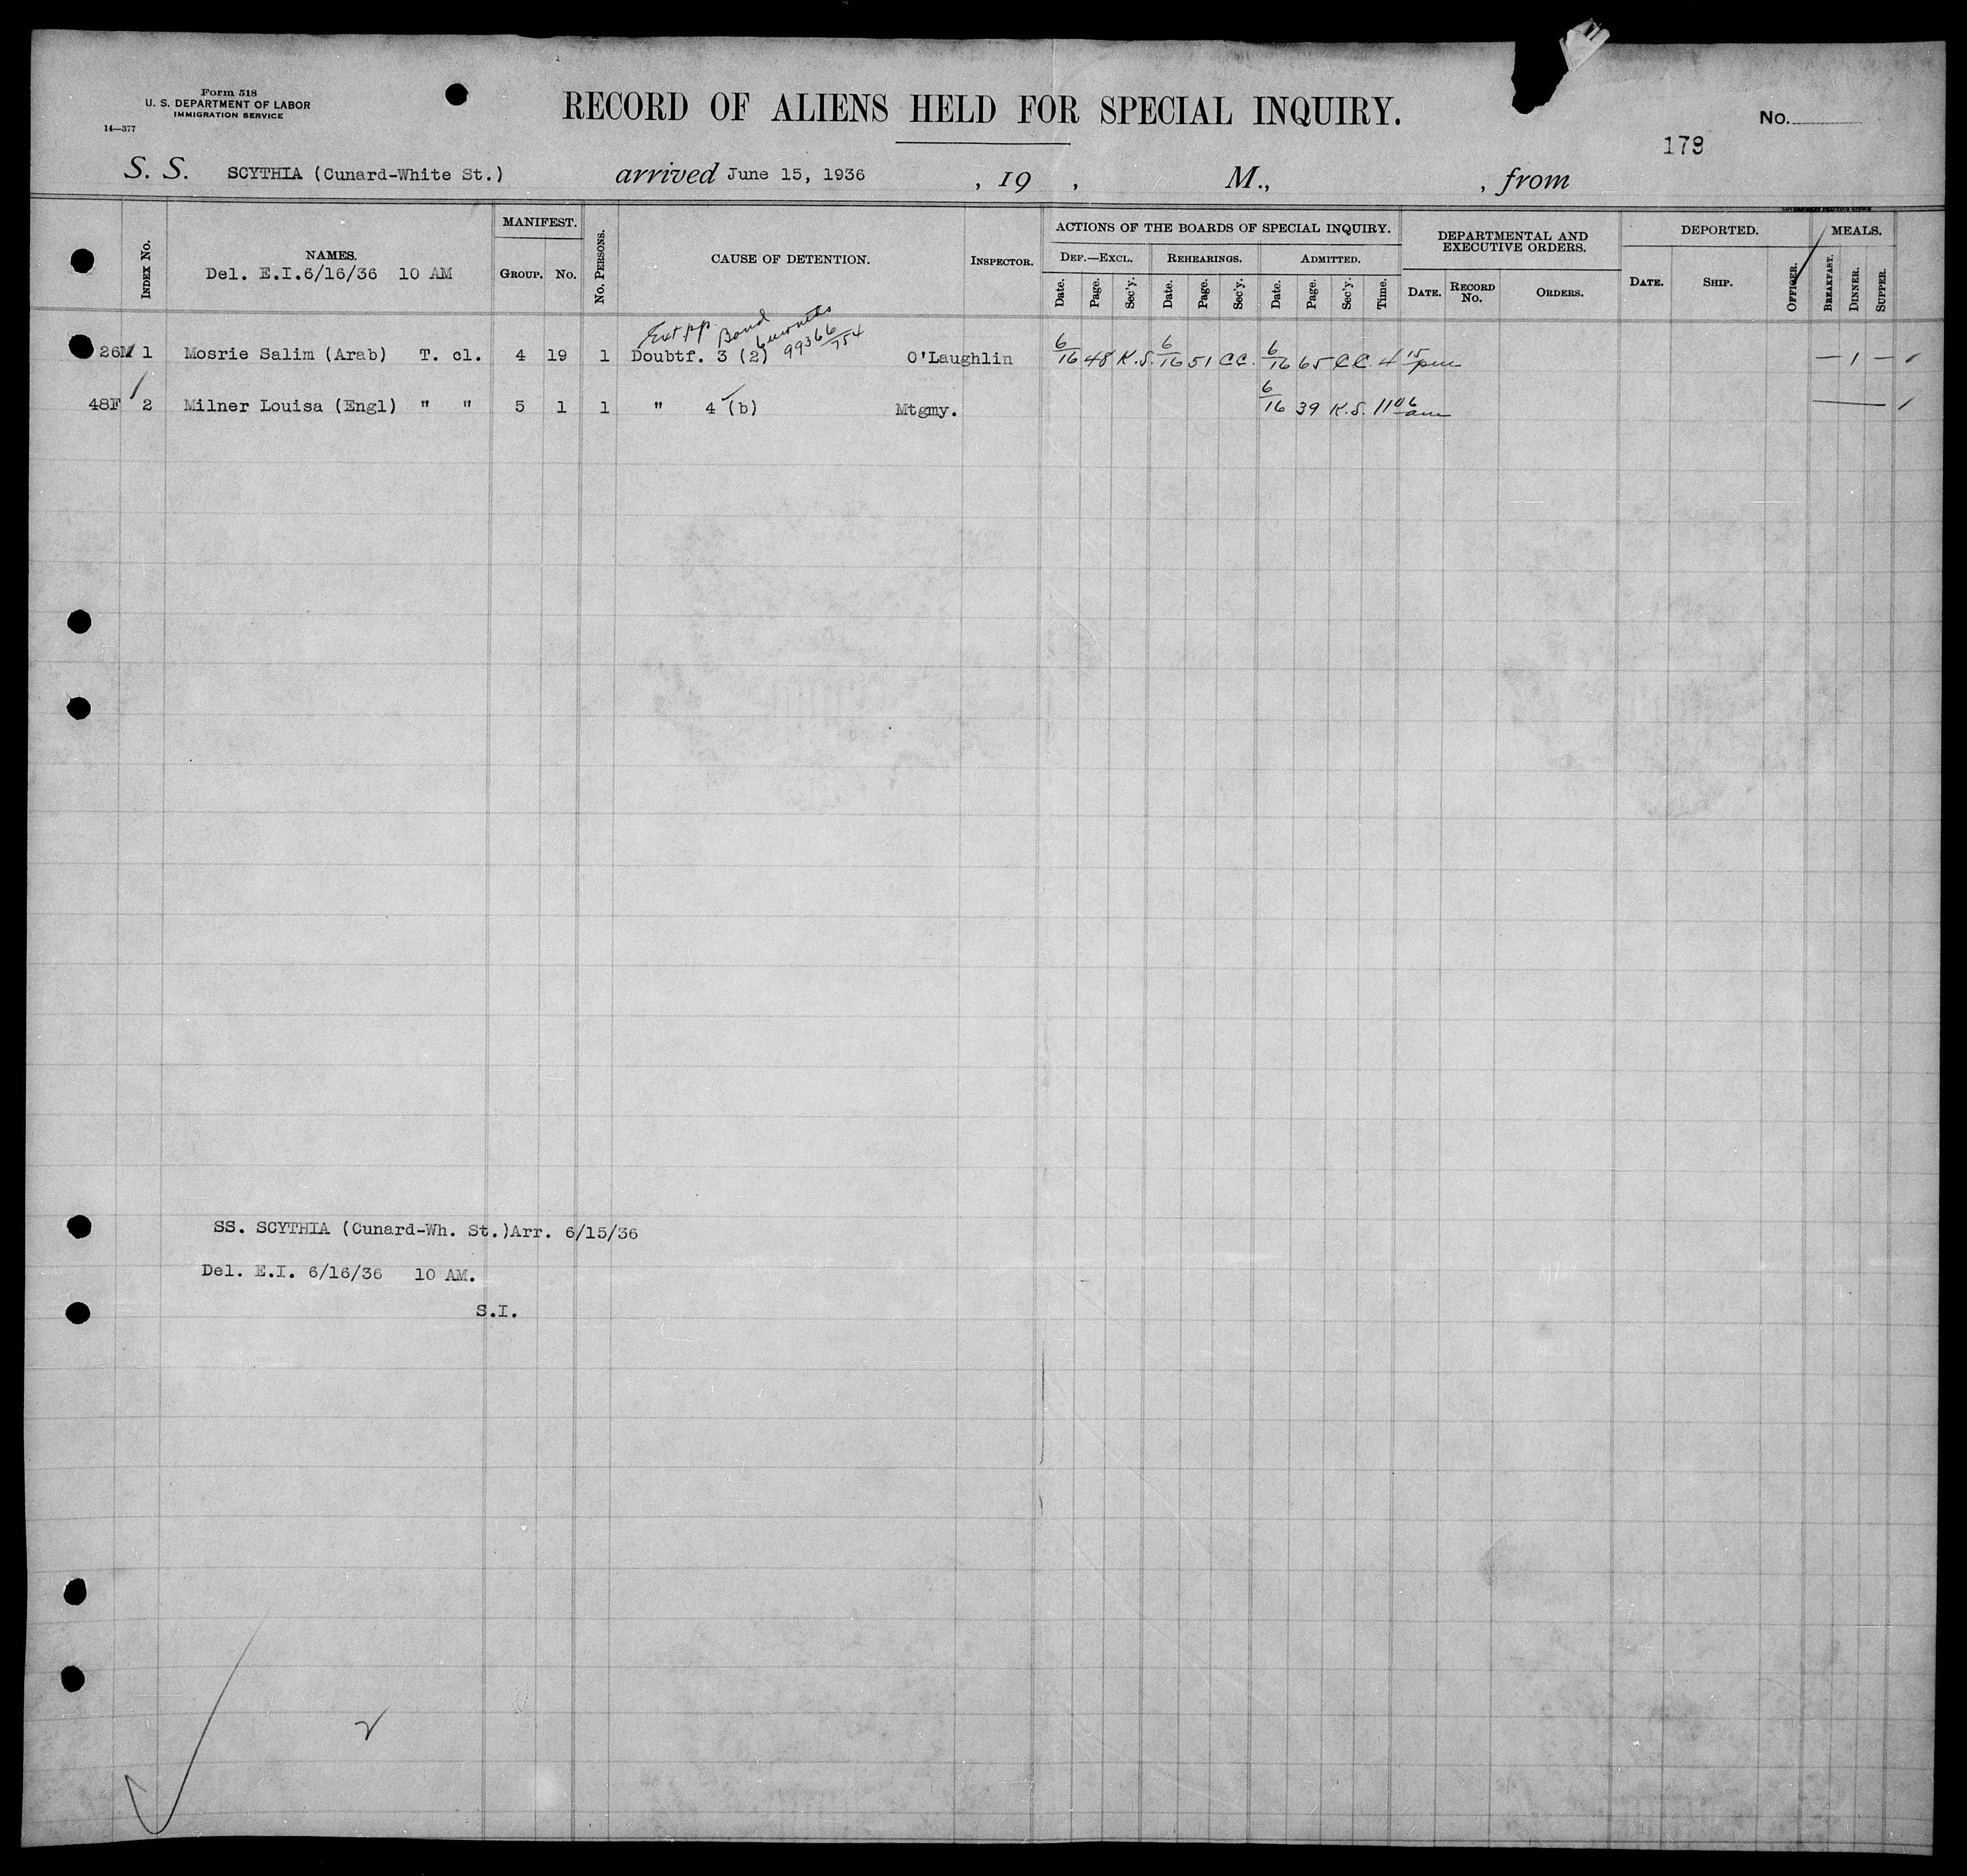 Form 518
U. S. DEPARTMENT OF LABOR
IMMIGRATION SERVICE
14—377
RECORD OF ALIENS HELD FOR SPECIAL INQUIRY.
No.
179
S. S. SCYTHIA (Cunard-White St.) arrived June 15, 1936 , 19 , M., , from
INDEX No.
NAMES.
Del. E.I.6/16/36 10 AM
MANIFEST.
GROUP. No.
No. PERSONS.
CAUSE OF DETENTION.
INSPECTOR.
ACTIONS OF THE BOARDS OF SPECIAL INQUIRY.
DEF.—EXCL. REHEARINGS. ADMITTED.
Date. Page. Sec'y. Date. Page. Sec'y. Date. Page. Sec'y. Time.
DEPARTMENTAL AND
EXECUTIVE ORDERS.
DATE. RECORD No. ORDERS.
DEPORTED.
DATE. SHIP. OFFICER.
MEALS.
BREAKFAST. DINNER. SUPPER.
Bond 6 months
26M 1 Mosrie Salim (Arab) T. cl. 4 19 1 Doubtf. 3 (2) O'Laughlin 6/16 48 K.S. 6/16 51 CC. 6/16 65 CC. 4 15 pm — 1 —
48F 2 Milner Louisa (Engl) " " 5 1 1 " 4 (b) Mtgmy. 6/16 39 K.S. 11 06 am
SS. SCYTHIA (Cunard-Wh. St.)Arr. 6/15/36
Del. E.I. 6/16/36 10 AM.
S.I.
2